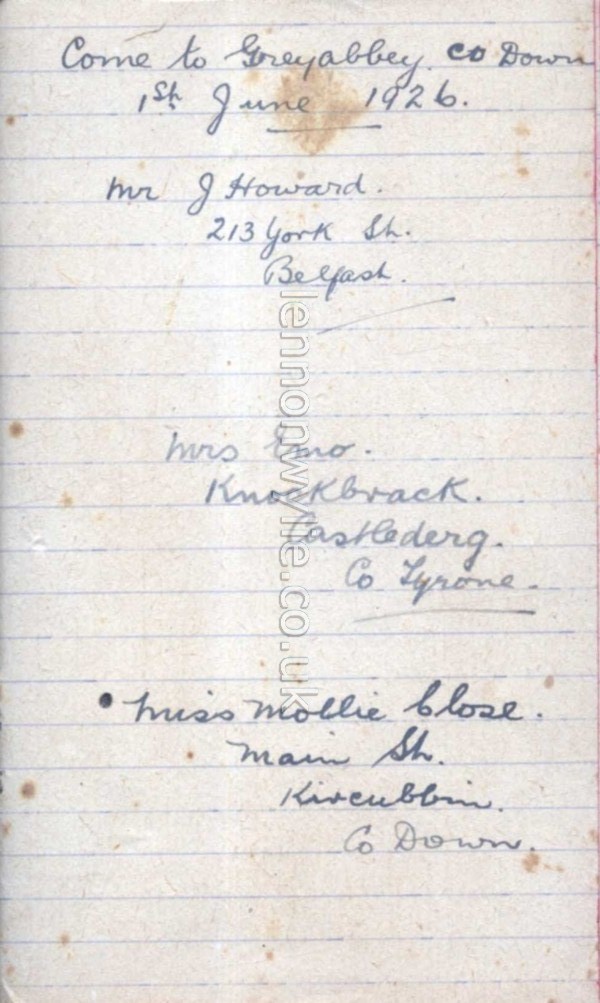 Come to Greyabbey Co Down
1st June 1926.
Mr J Howard.
213 York St.
Belfast.
Mrs Emo.
Knockbrack.
Castlederg.
Co Tyrone.
Miss Mollie Close.
Main St.
Kircubbin.
Co Down.
lennonwylie.co.uk